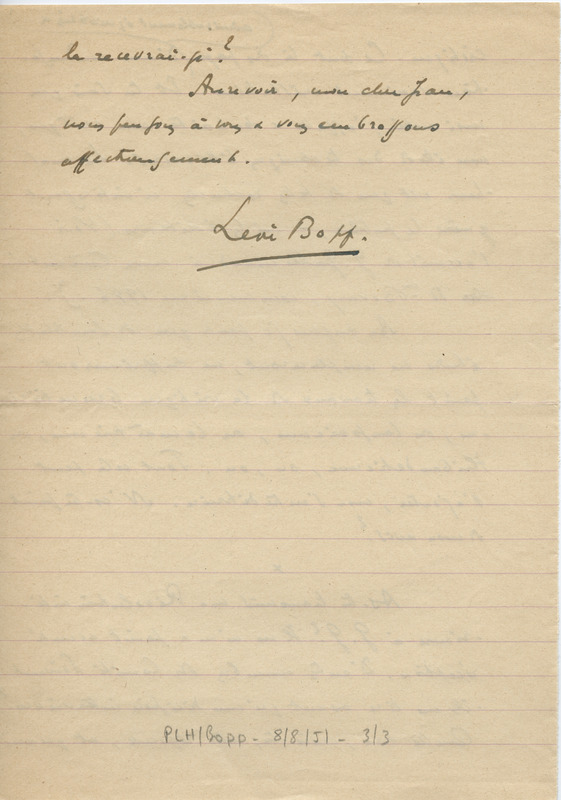 la recevrai-je ?
Au revoir, mon cher Jean,
nous pensons à vous & vous embrassons
affectueusement.
Léon Bopp.
PLH/Bopp - 8/8/51 - 3/3